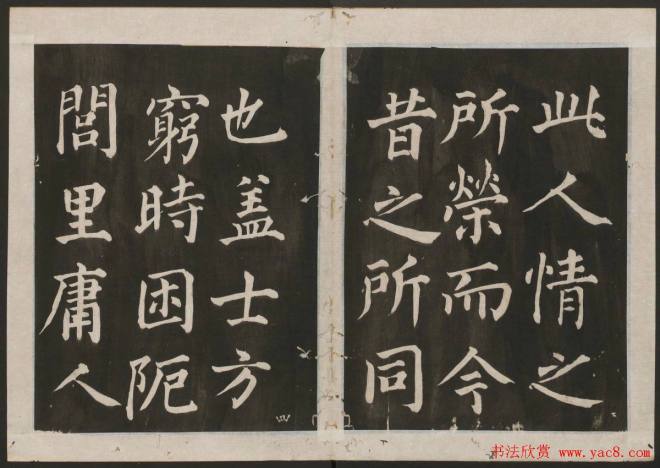 此人情之
所榮而今
昔之所同
也盖士方
窮時困阨
閭里庸人
书法欣赏 www.yac8.com